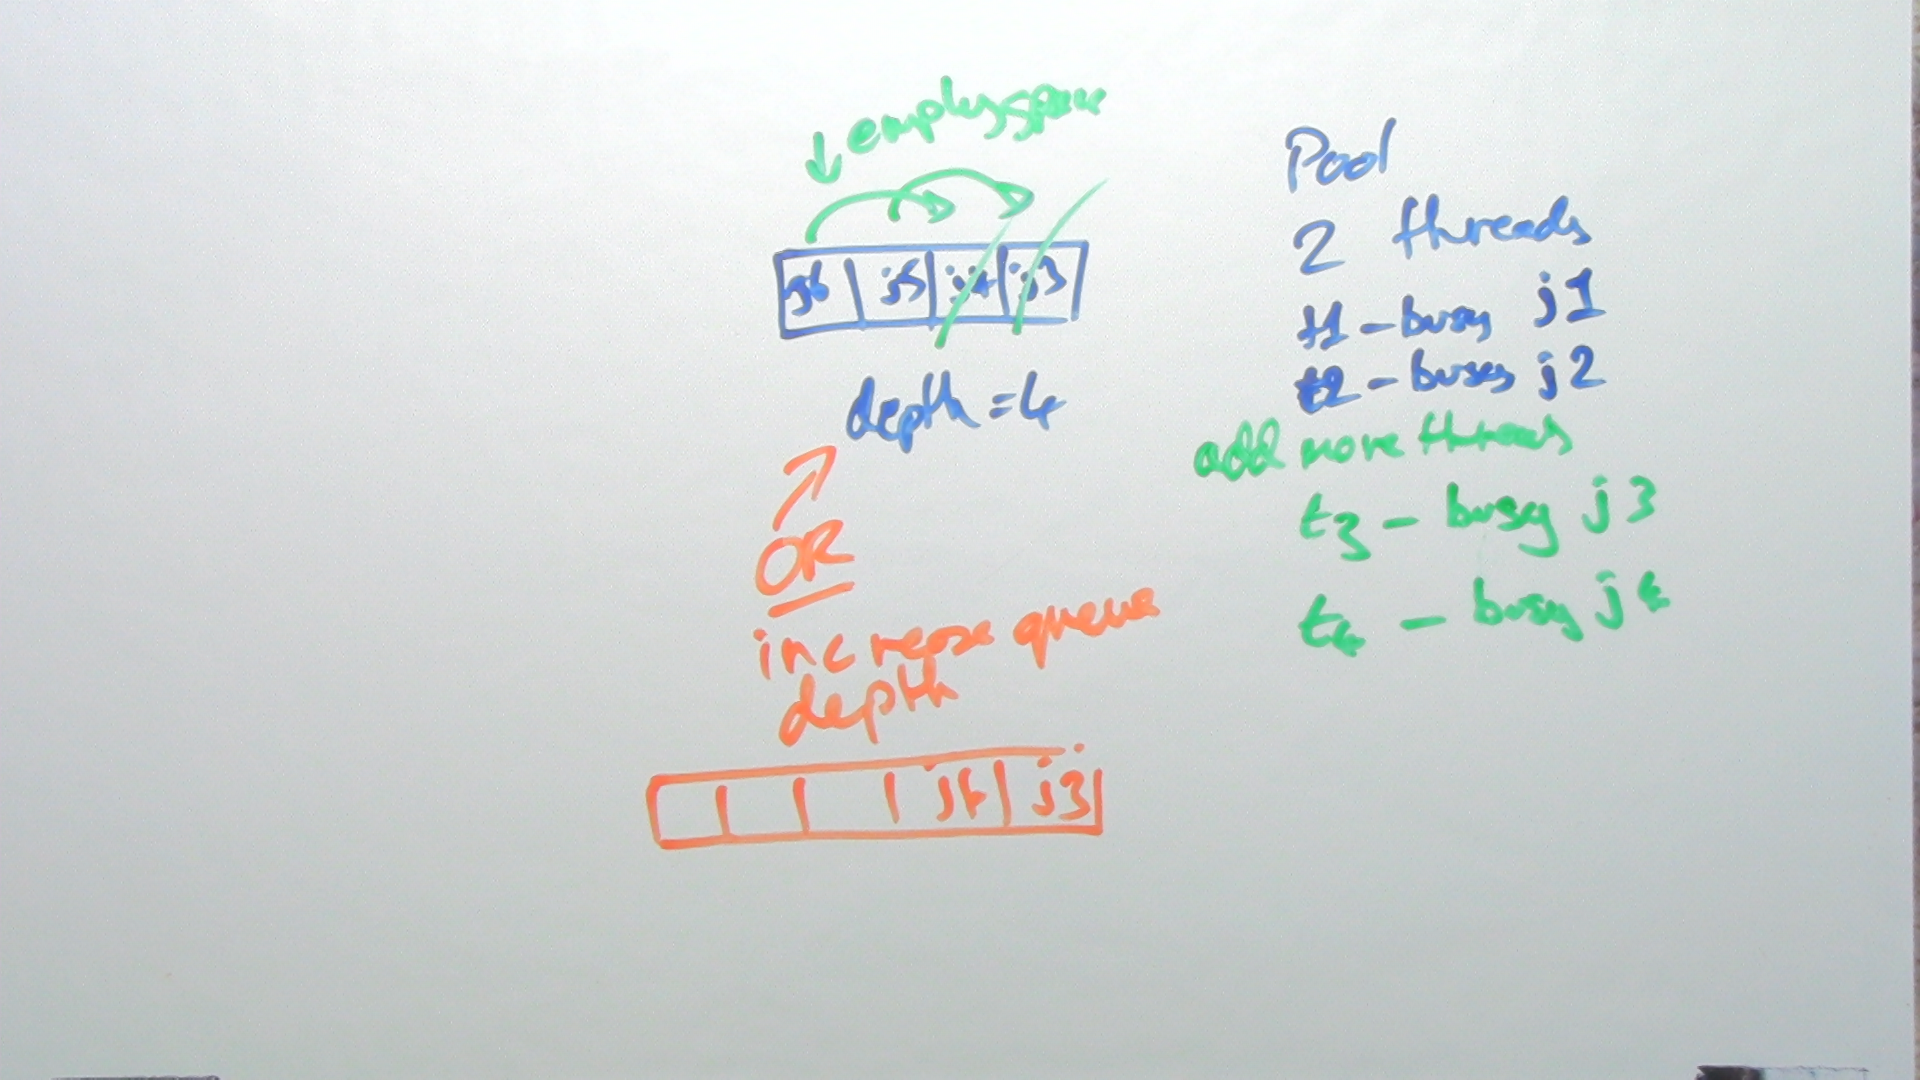 ↓ empty space
j6 j5 j4 j3
depth = 4
OR
increase queue
depth
j4 j3
Pool
2 threads
t1 - busy j1
t2 - busy j2
add more threads
t3 - busy j3
t4 - busy j4